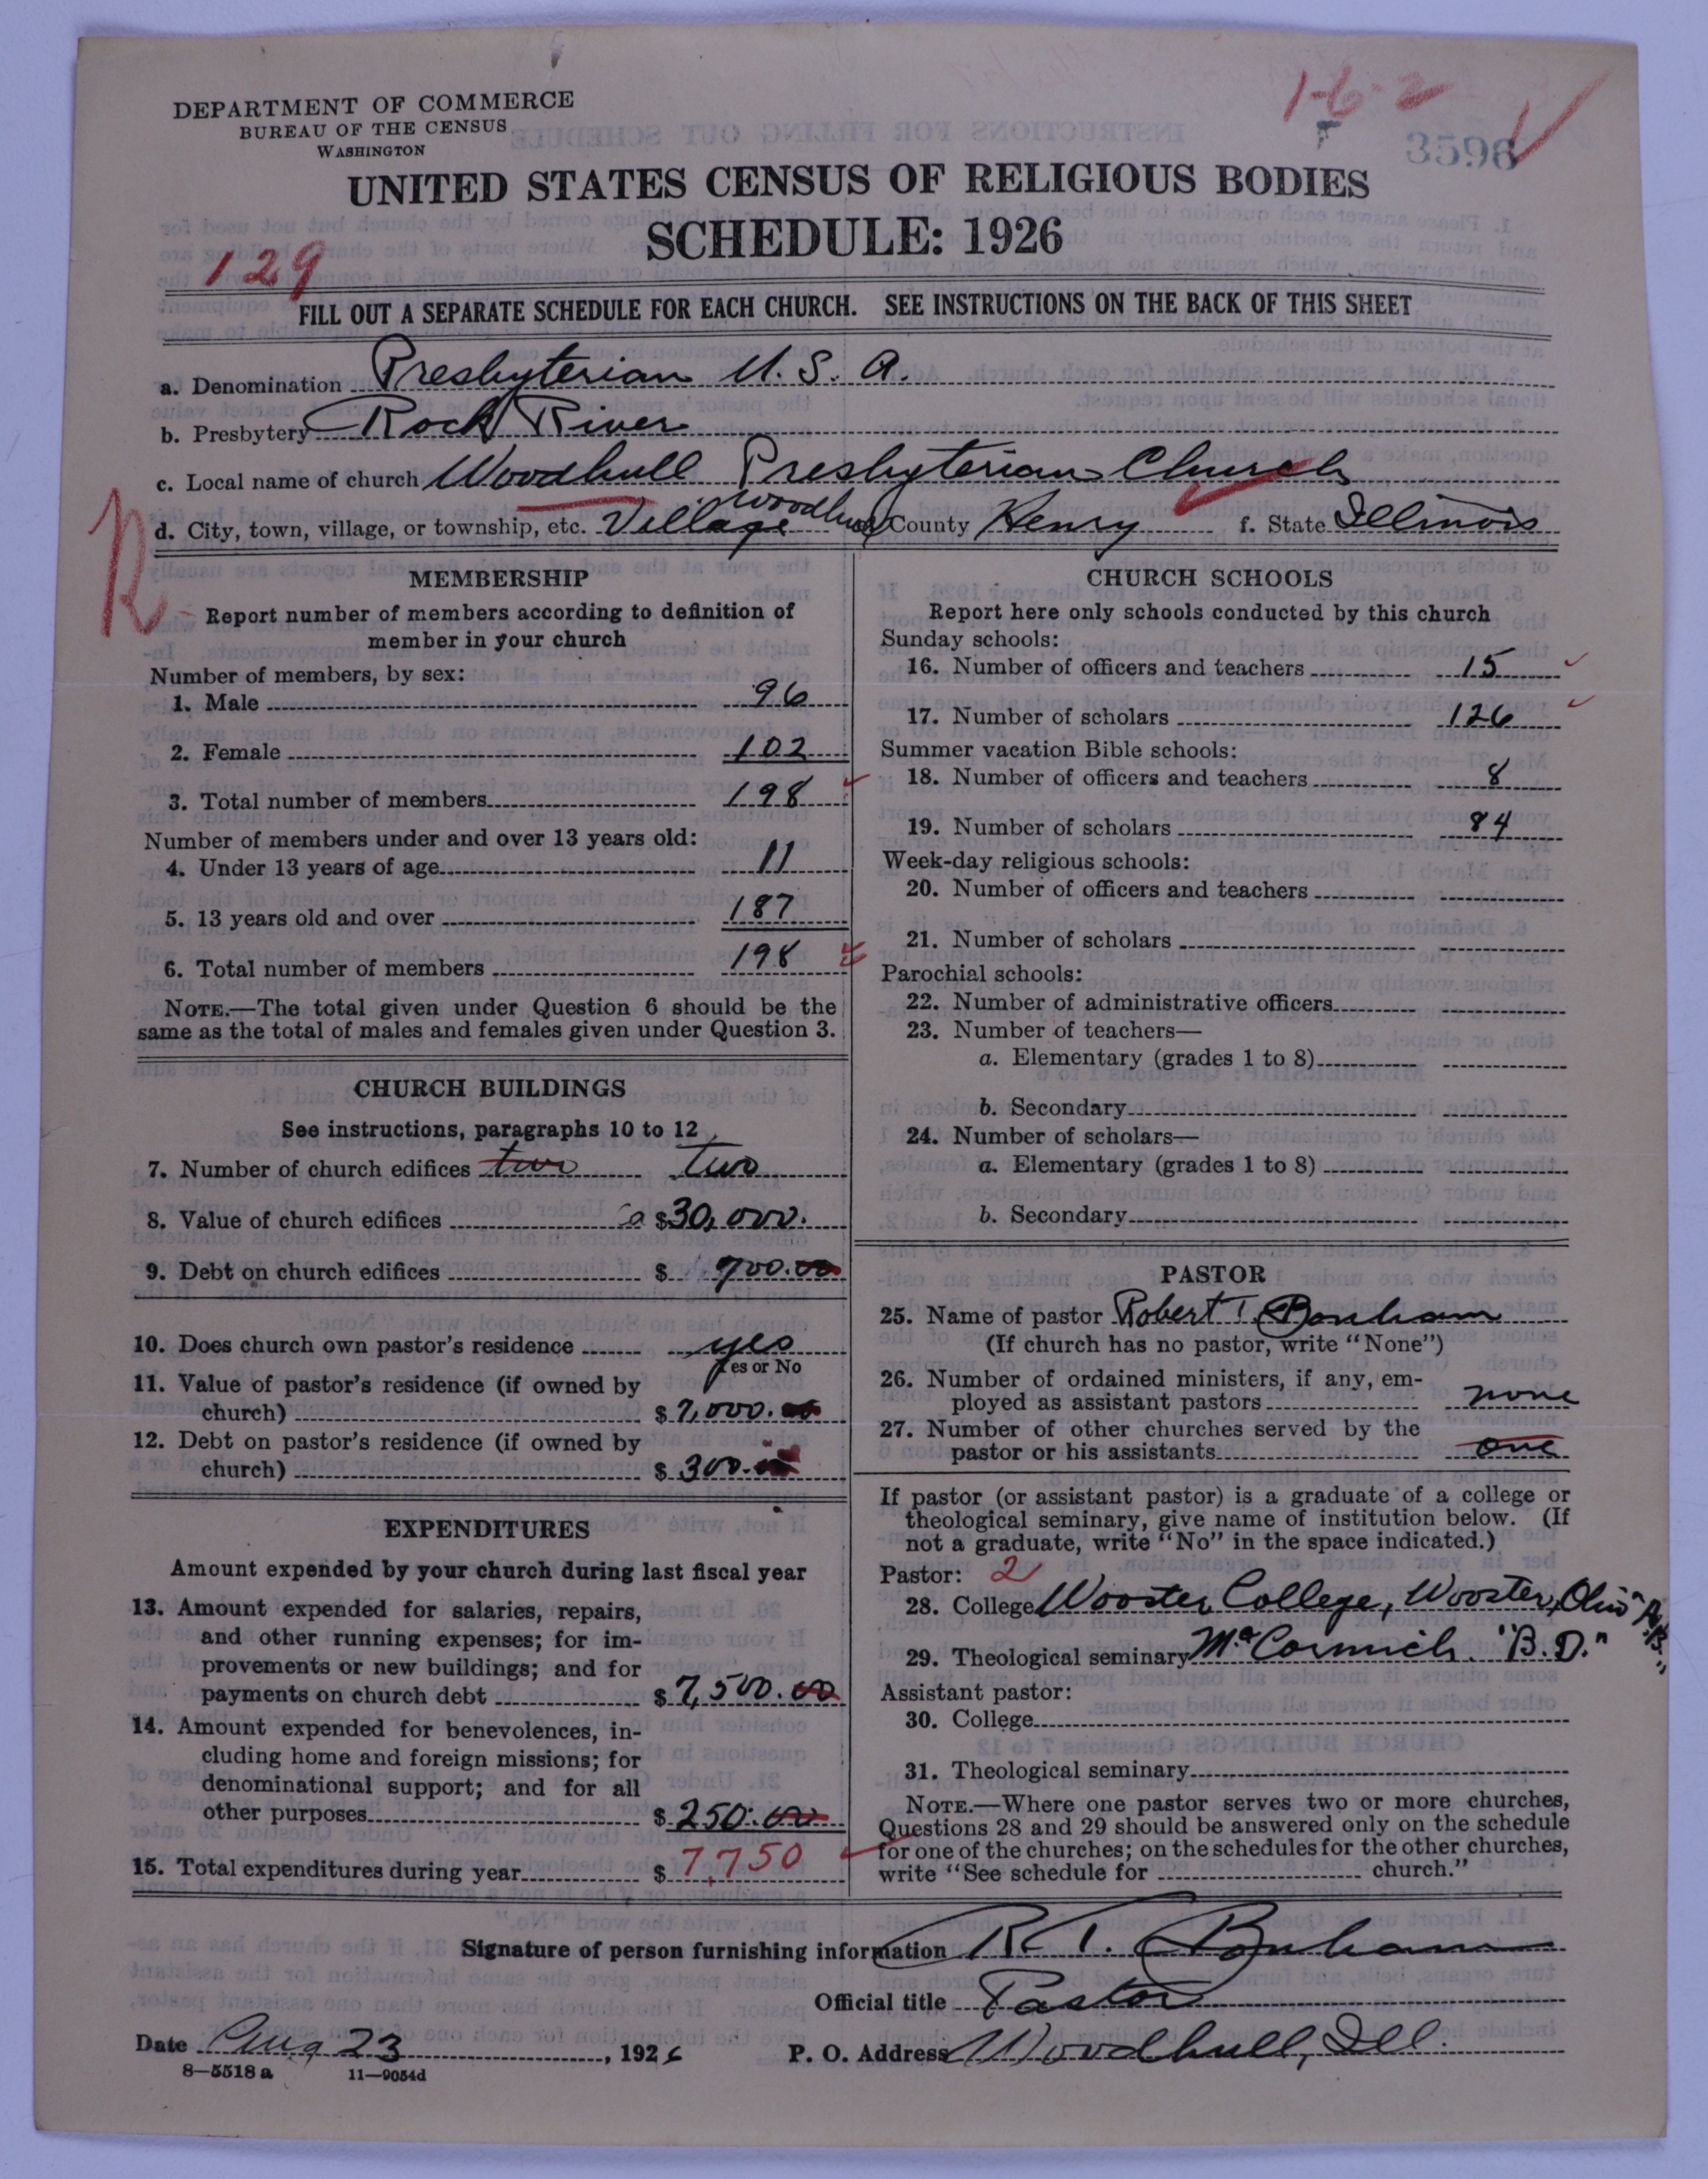 DEPARTMENT OF COMMERCE
BUREAU OF THE CENSUS
WASHINGTON
1-6-2
3596
UNITED STATES CENSUS OF RELIGIOUS BODIES
SCHEDULE: 1926
129
FILL OUT A SEPARATE SCHEDULE FOR EACH CHURCH. SEE INSTRUCTIONS ON THE BACK OF THIS SHEET
a. Denomination Presbyterian U. S. A.
b. Presbytery Rock River
c. Local name of church Woodhull Presbyterian Church
d. City, town, village, or township, etc. Village Woodhull County Henry f. State Illinois
R
MEMBERSHIP
Report number of members according to definition of
member in your church
Number of members, by sex:
1. Male 96
2. Female 102
3. Total number of members 198
Number of members under and over 13 years old:
4. Under 13 years of age 11
5. 13 years old and over 187
6. Total number of members 198
NOTE.—The total given under Question 6 should be the
same as the total of males and females given under Question 3.
CHURCH BUILDINGS
See instructions, paragraphs 10 to 12
7. Number of church edifices two two
8. Value of church edifices $30,000.
9. Debt on church edifices $ 900.00
10. Does church own pastor's residence yes
Yes or No
11. Value of pastor's residence (if owned by
church) $ 7,000.00
12. Debt on pastor's residence (if owned by
church) $ 300.00
EXPENDITURES
Amount expended by your church during last fiscal year
13. Amount expended for salaries, repairs,
and other running expenses; for im-
provements or new buildings; and for
payments on church debt $ 7,500.00
14. Amount expended for benevolences, in-
cluding home and foreign missions; for
denominational support; and for all
other purposes $ 250.00
15. Total expenditures during year $ 7,750
CHURCH SCHOOLS
Report here only schools conducted by this church
Sunday schools:
16. Number of officers and teachers 15
17. Number of scholars 126
Summer vacation Bible schools:
18. Number of officers and teachers 8
19. Number of scholars 84
Week-day religious schools:
20. Number of officers and teachers
21. Number of scholars
Parochial schools:
22. Number of administrative officers
23. Number of teachers—
a. Elementary (grades 1 to 8)
b. Secondary
24. Number of scholars—
a. Elementary (grades 1 to 8)
b. Secondary
PASTOR
25. Name of pastor Robert T. Bonham
(If church has no pastor, write "None")
26. Number of ordained ministers, if any, em-
ployed as assistant pastors none
27. Number of other churches served by the
pastor or his assistants one
If pastor (or assistant pastor) is a graduate of a college or
theological seminary, give name of institution below. (If
not a graduate, write "No" in the space indicated.)
Pastor: 2
28. College Wooster College, Wooster, Ohio "A.B."
29. Theological seminary McCormick. "B.D."
Assistant pastor:
30. College
31. Theological seminary
NOTE.—Where one pastor serves two or more churches,
Questions 28 and 29 should be answered only on the schedule
for one of the churches; on the schedules for the other churches,
write "See schedule for church."
Signature of person furnishing information R. T. Bonham
Official title Pastor
Date Aug 23, 1926 P. O. Address Woodhull, Ill.
8—5518 a 11—9054d